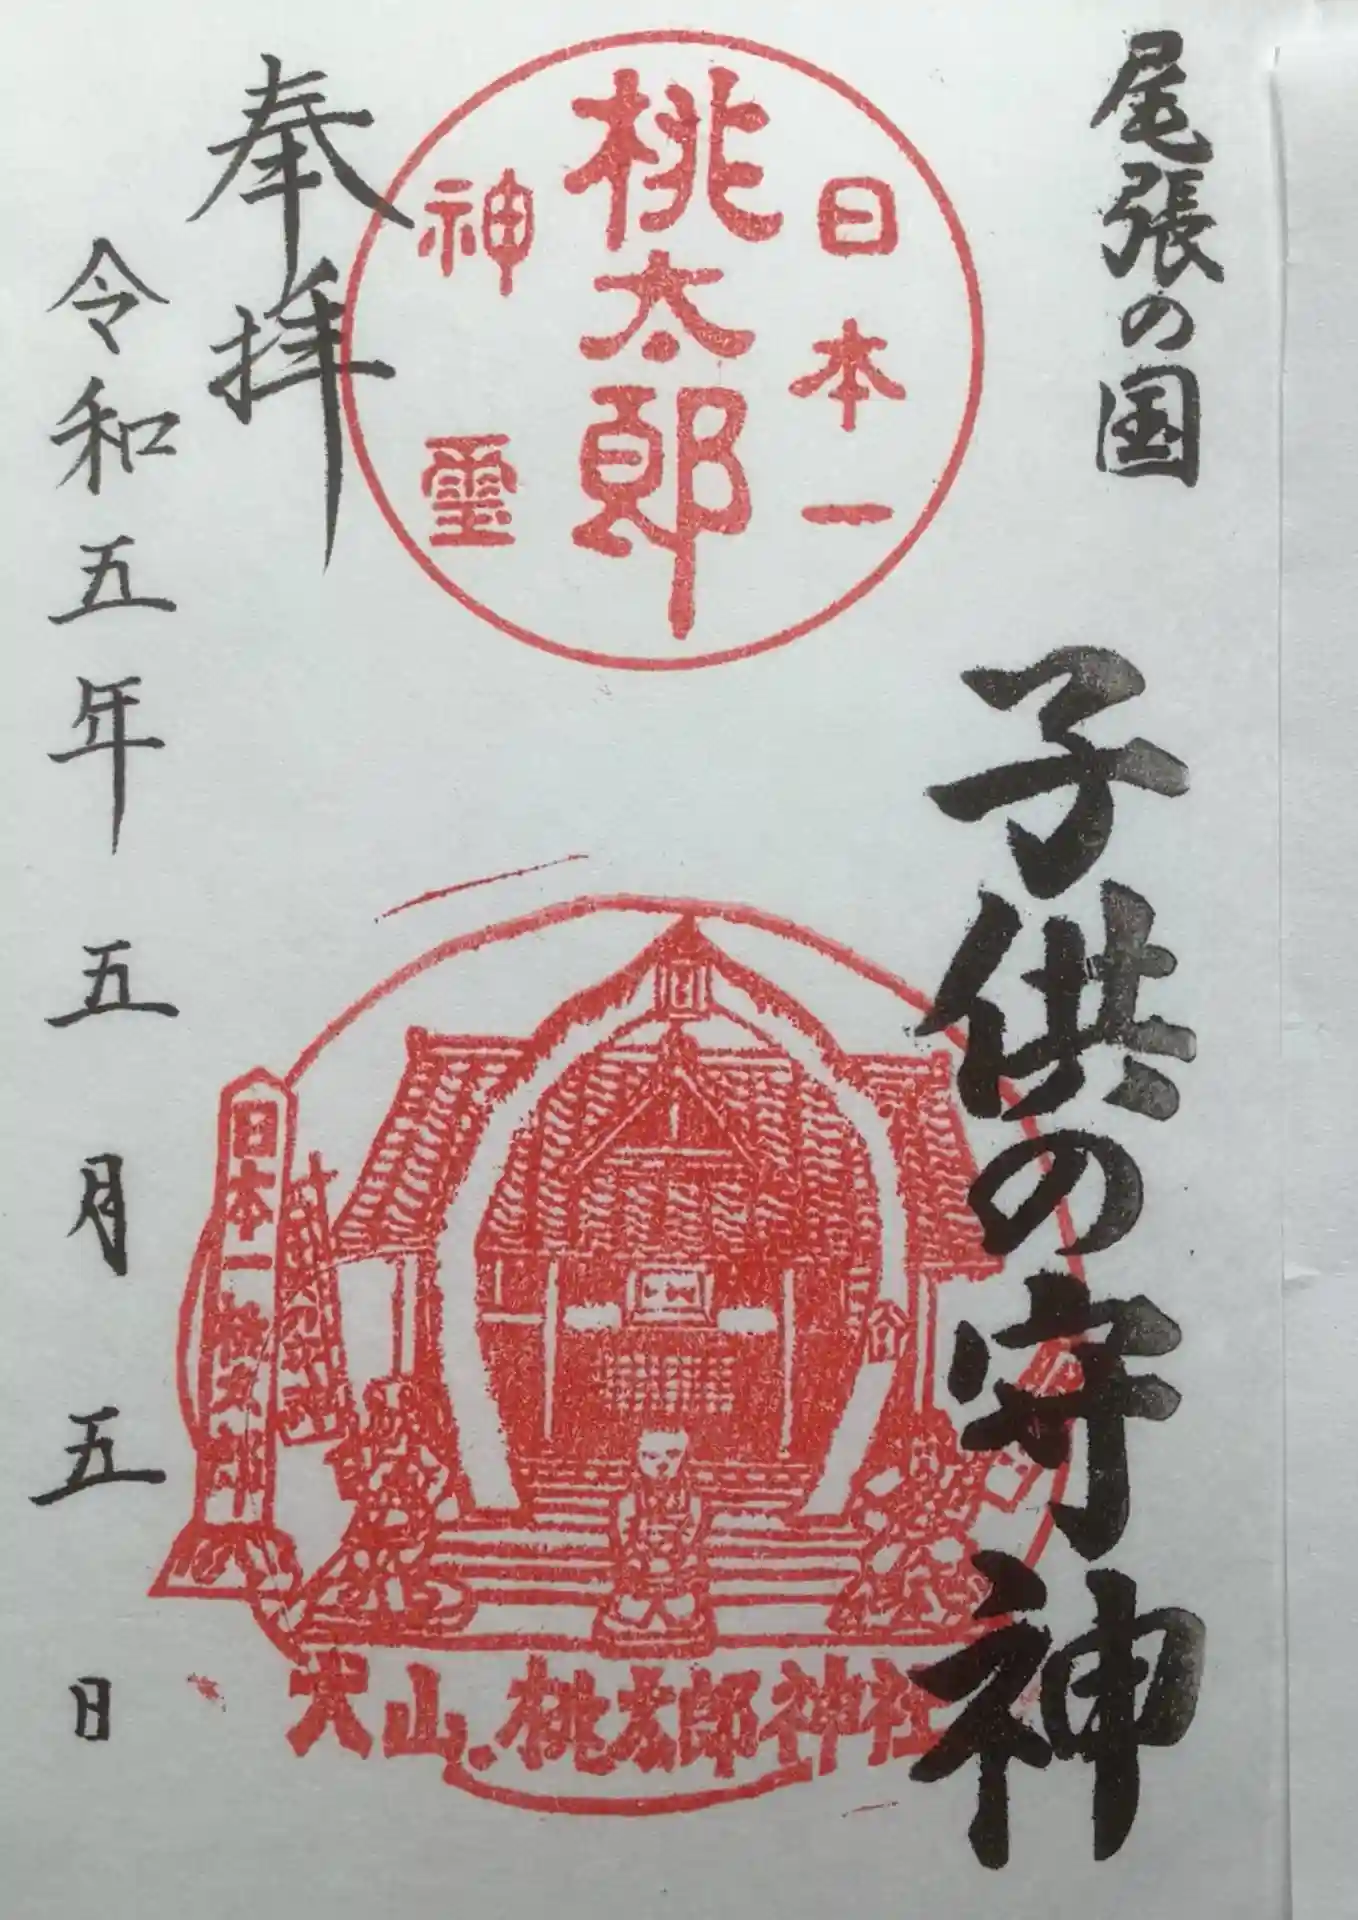 尾張の国
子供の守神
日本一
桃太郎
神霊
奉拝
令和五年五月五日
日本一
犬山.桃太郎神社